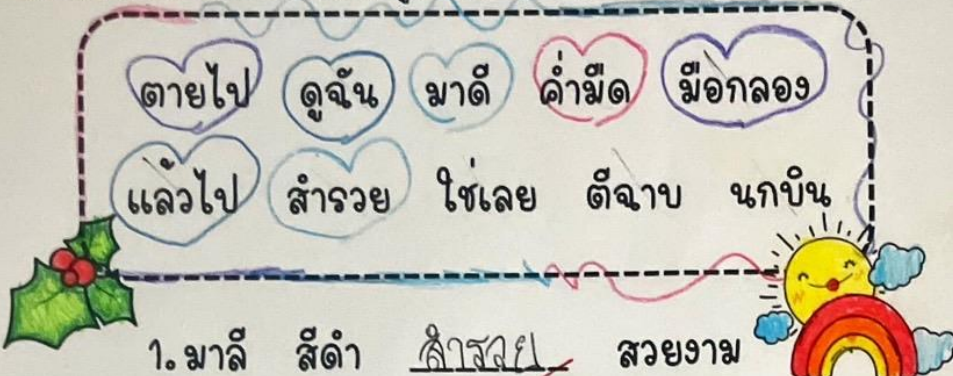 ตายไป ดูฉัน มาดี ค่ำมืด มือกลอง
แล้วไป สำรวย ใช่เลย ตีฉาบ นกบิน
1. มาลี สีดำ สำรวย สวยงาม